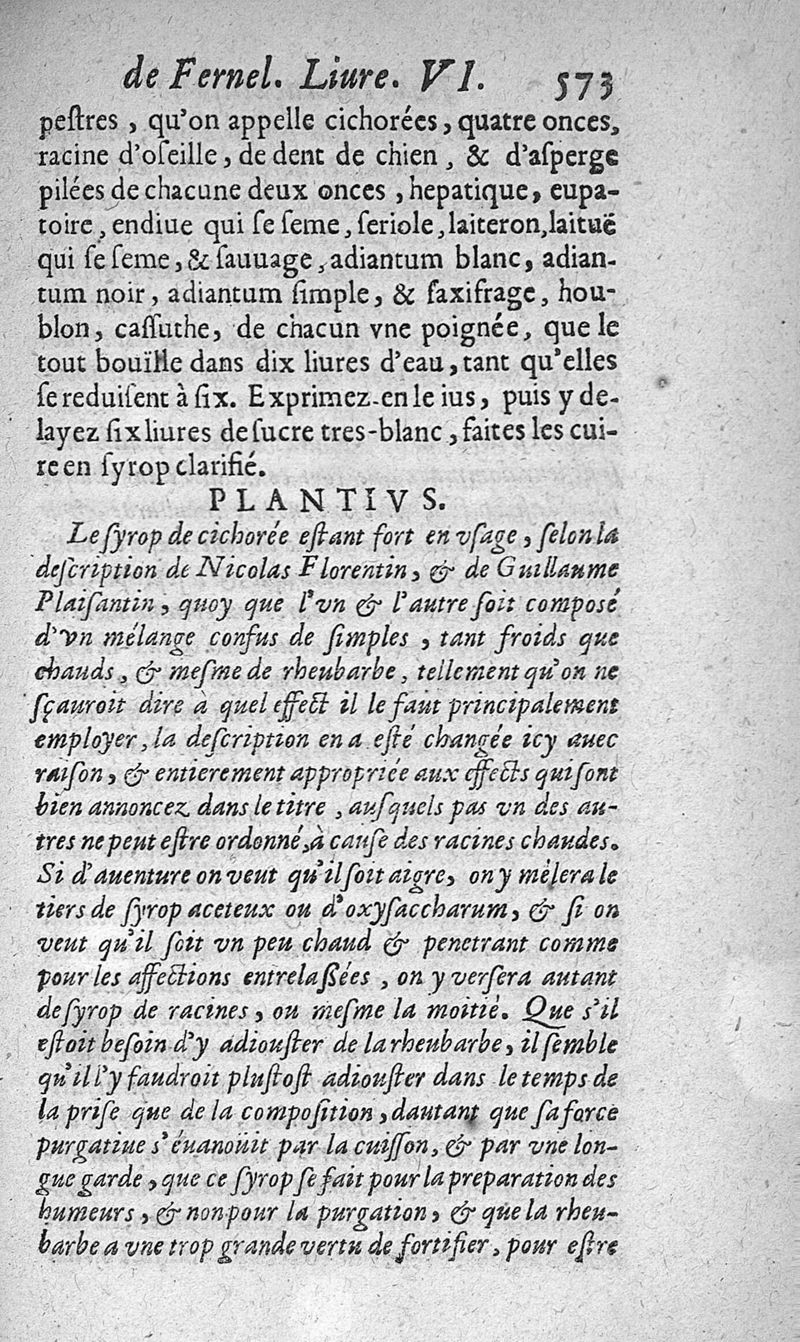 de Fernel. Liure. VI. 573
peſtres, qu'on appelle cichorées, quatre onces,
racine d'oſeille, de dent de chien, & d'aſperge
pilées de chacune deux onces, hepatique, eupa-
toire, endiue qui ſe ſeme, ſeriole, laiteron, laituë
qui ſe ſeme, & ſauuage, adiantum blanc, adian-
tum noir, adiantum ſimple, & ſaxifrage, hou-
blon, caſſuthe, de chacun vne poignée, que le
tout bouïlle dans dix liures d'eau, tant qu'elles
ſe reduiſent à ſix. Exprimez-en le ius, puis y de-
layez ſix liures de ſucre tres-blanc, faites les cui-
re en ſyrop clarifié.
PLANTIVS.
Le ſyrop de cichorée eſtant fort en vſage, ſelon la
deſcription de Nicolas Florentin, & de Guillaume
Plaiſantin, quoy que l'vn & l'autre ſoit composé
d'vn mélange confus de ſimples, tant froids que
chauds, & meſme de rheubarbe, tellement qu'on ne
ſçauroit dire à quel effect il le faut principalement
employer, la deſcription en a eſté changée icy auec
raiſon, & entierement appropriée aux effects qui ſont
bien annoncez dans le titre, auſquels pas vn des au-
tres ne peut eſtre ordonné, à cauſe des racines chaudes.
Si d'auenture on veut qu'il ſoit aigre, on y mêlera le
tiers de ſyrop aceteux ou d'oxyſaccharum, & ſi on
veut qu'il ſoit vn peu chaud & penetrant comme
pour les affections entrelaſſées, on y verſera autant
de ſyrop de racines, ou meſme la moitié. Que s'il
eſtoit beſoin d'y adiouſter de la rheubarbe, il ſemble
qu'il l'y faudroit pluſtoſt adiouſter dans le temps de
la priſe que de la compoſition, dautant que ſa force
purgatiue s'éuanoüit par la cuiſſon, & par vne lon-
gue garde, que ce ſyrop ſe fait pour la preparation des
humeurs, & non pour la purgation, & que la rheu-
barbe a vne trop grande vertu de fortifier, pour eſtre